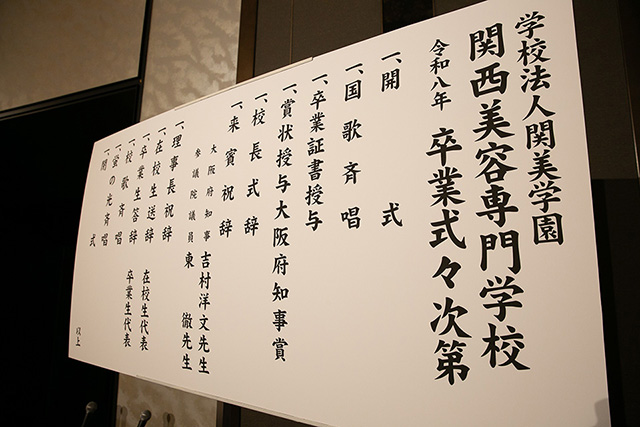 学校法人関美学園
関西美容専門学校
令和八年 卒業式々次第
一、開式
一、国歌斉唱
一、卒業証書授与
一、賞状授与大阪府知事賞
一、校長式辞
一、来賓祝辞
大阪府知事 吉村洋文先生
参議院議員 東徹先生
一、理事長祝辞
一、在校生送辞 在校生代表
一、卒業生答辞 卒業生代表
一、校歌斉唱
一、蛍の光斉唱
一、閉式
以上